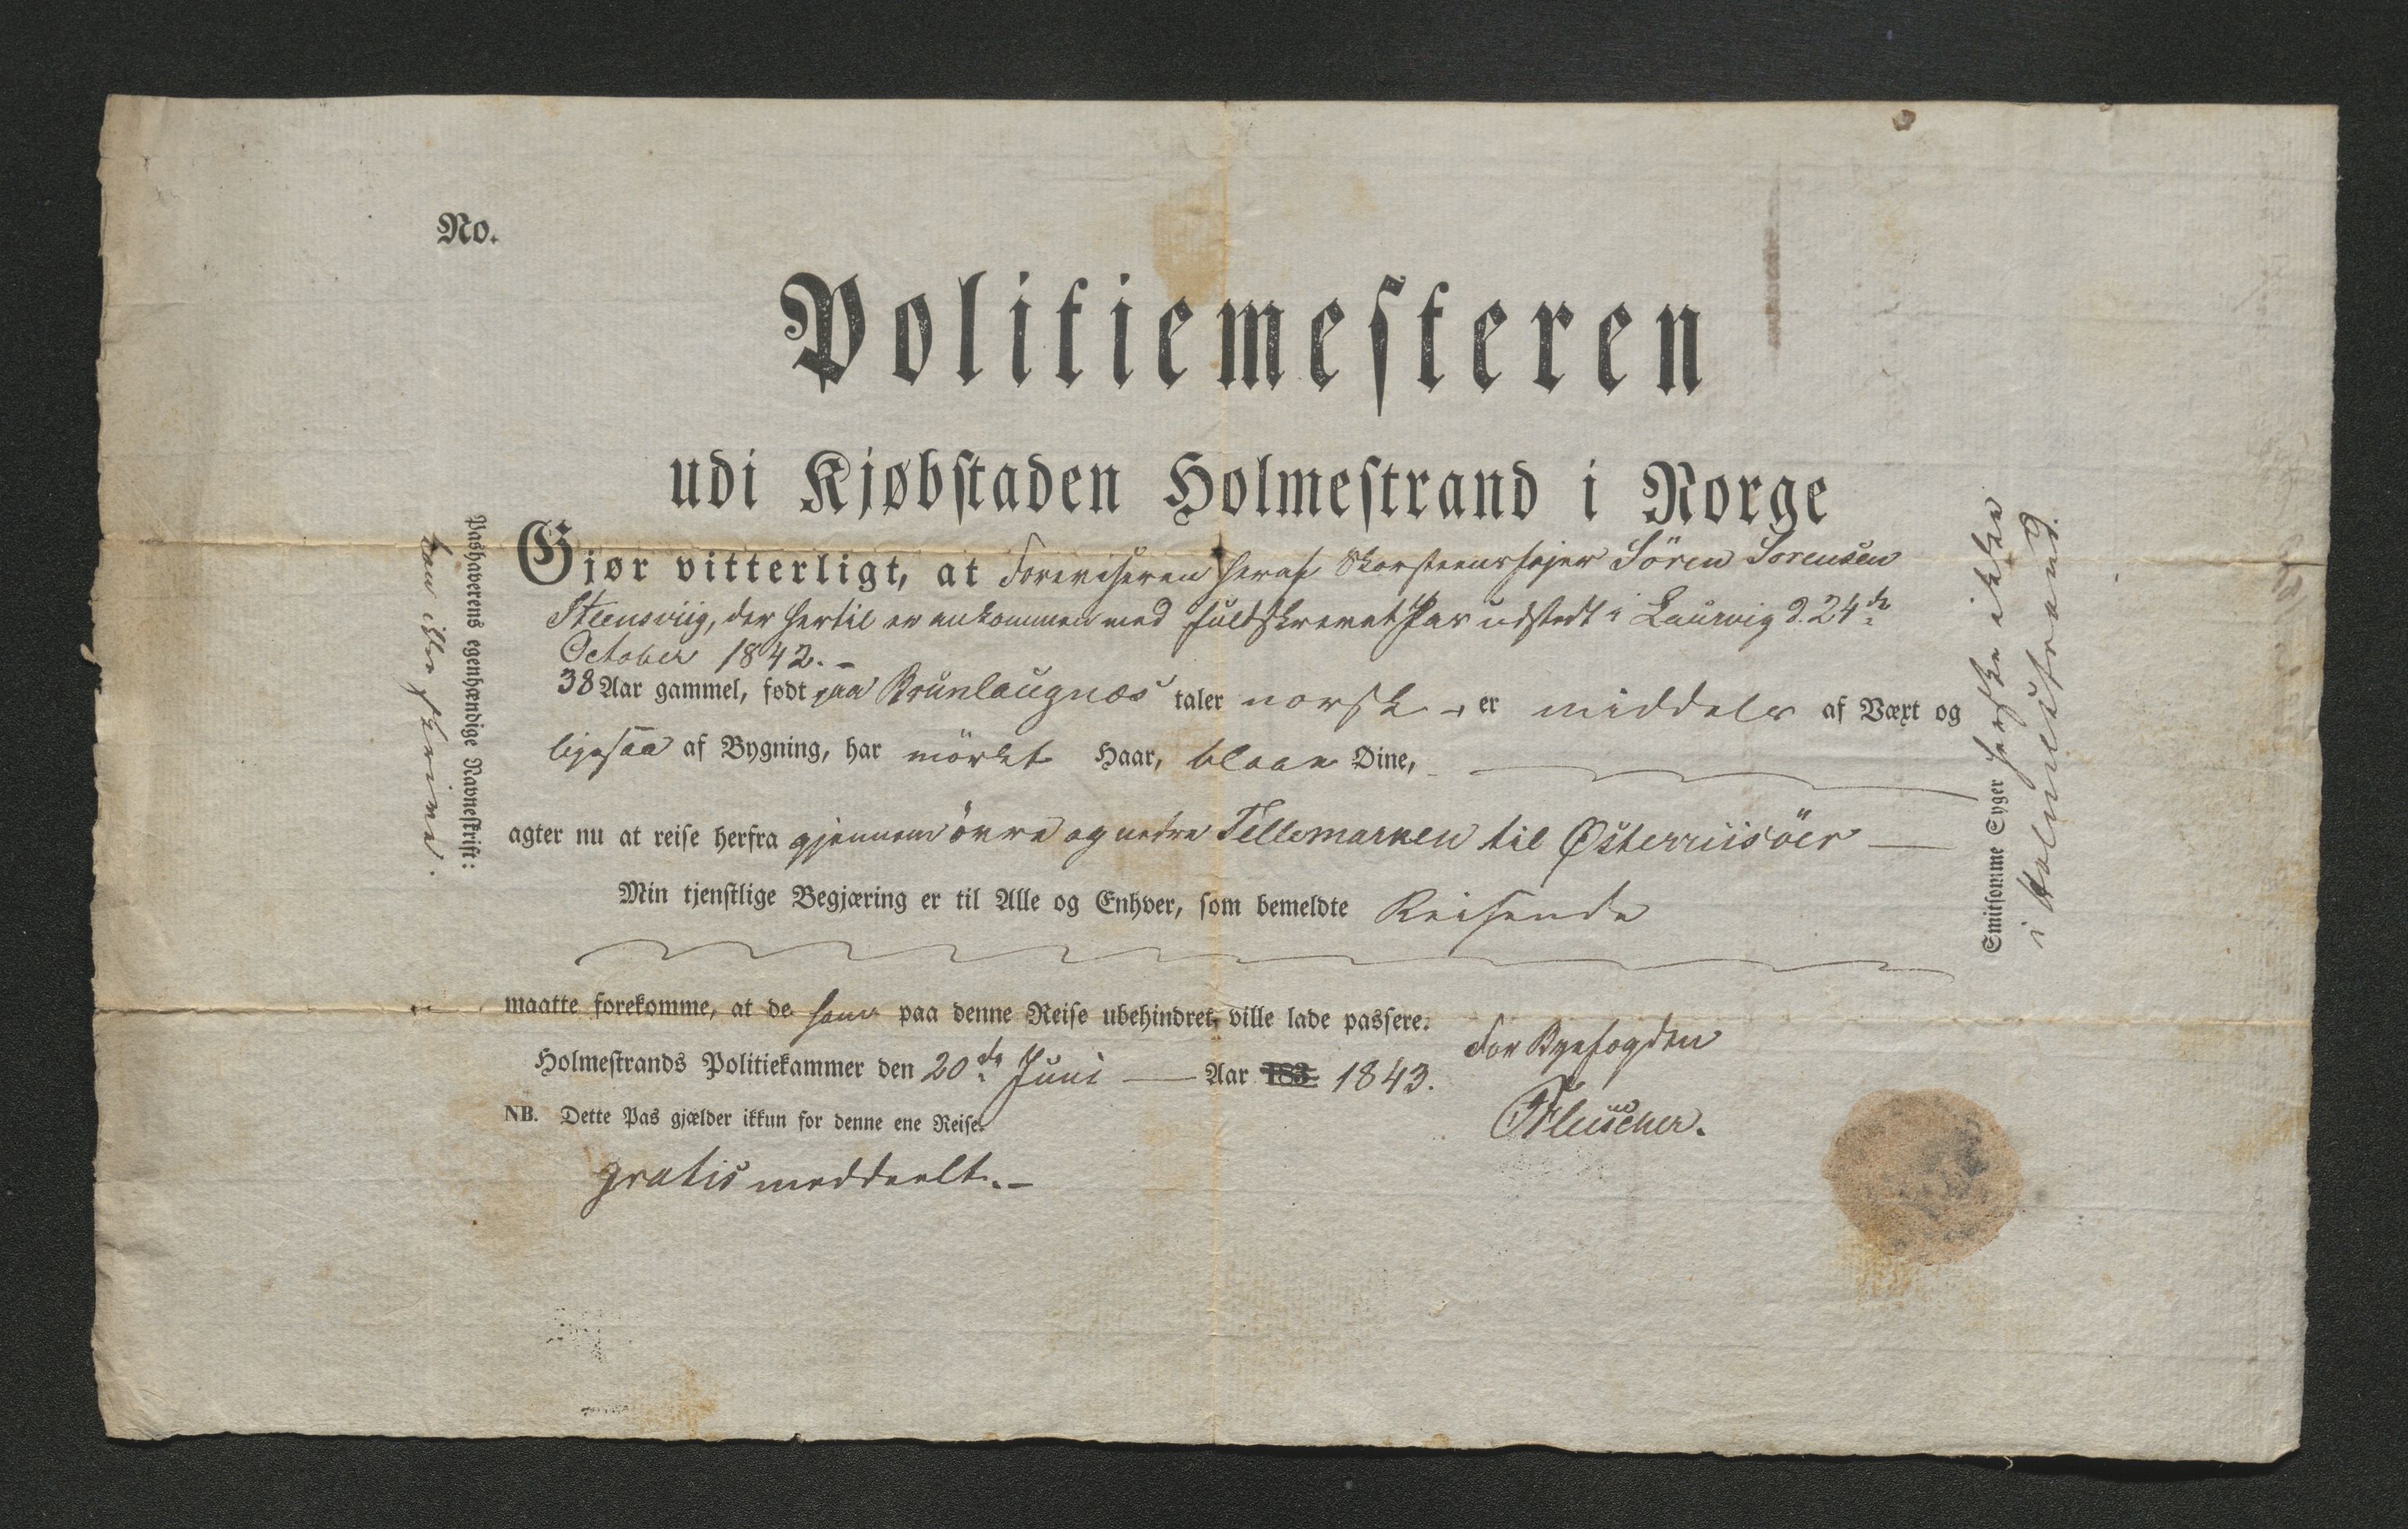 No.
Politiemesteren
udi Kjøbstaden Holmestrand i Norge
Gjør vitterligt, at Foreviseren heraf Skorsteensfejer Sören Sorensen
Steensviig, der hertil er ankommen med fuldskrevet Pas udstedt i Laurvig d. 24de
October 1842. –
38 Aar gammel, født paa Brunlaugnæs taler norsk –, er middels af Væxt og
ligesaa af Bygning, har mörkt Haar, blaae Øine,
agter nu at reise herfra gjennem övre og nedre Tellemarken til Østerriisöer —
Min tjenstlige Begjæring er til Alle og Enhver, som bemeldte Reisende
maatte forekomme, at de ham paa denne Reise ubehindret ville lade passere.
Holmestrands Politiekammer den 20de Juni — Aar 183 1843.
For Byefogden
NB. Dette Pas gjælder ikkun for denne ene Reise.
gratis meddeelt. –
Pashaverens egenhændige Navneskrift:
kan ikke skrive.
Smitsomme Syger herske ikke
i Holmestrand.